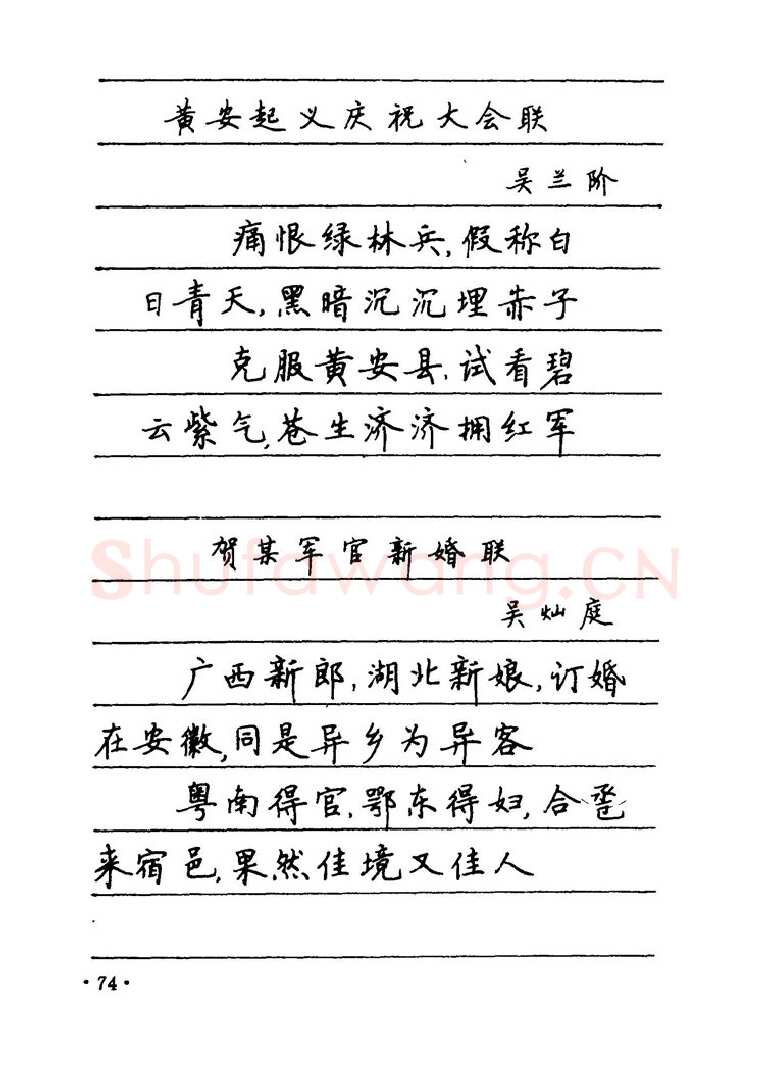 黄安起义庆祝大会联
吴兰阶
痛恨绿林兵,假称白
日青天,黑暗沉沉埋赤子
克服黄安县,试看碧
云紫气,苍生济济拥红军
Shufawang.CN
贺某军官新婚联
吴灿庭
广西新郎,湖北新娘,订婚
在安徽,同是异乡为异客
粤南得官,鄂东得妇,合卺
来宿邑,果然佳境又佳人
·74·